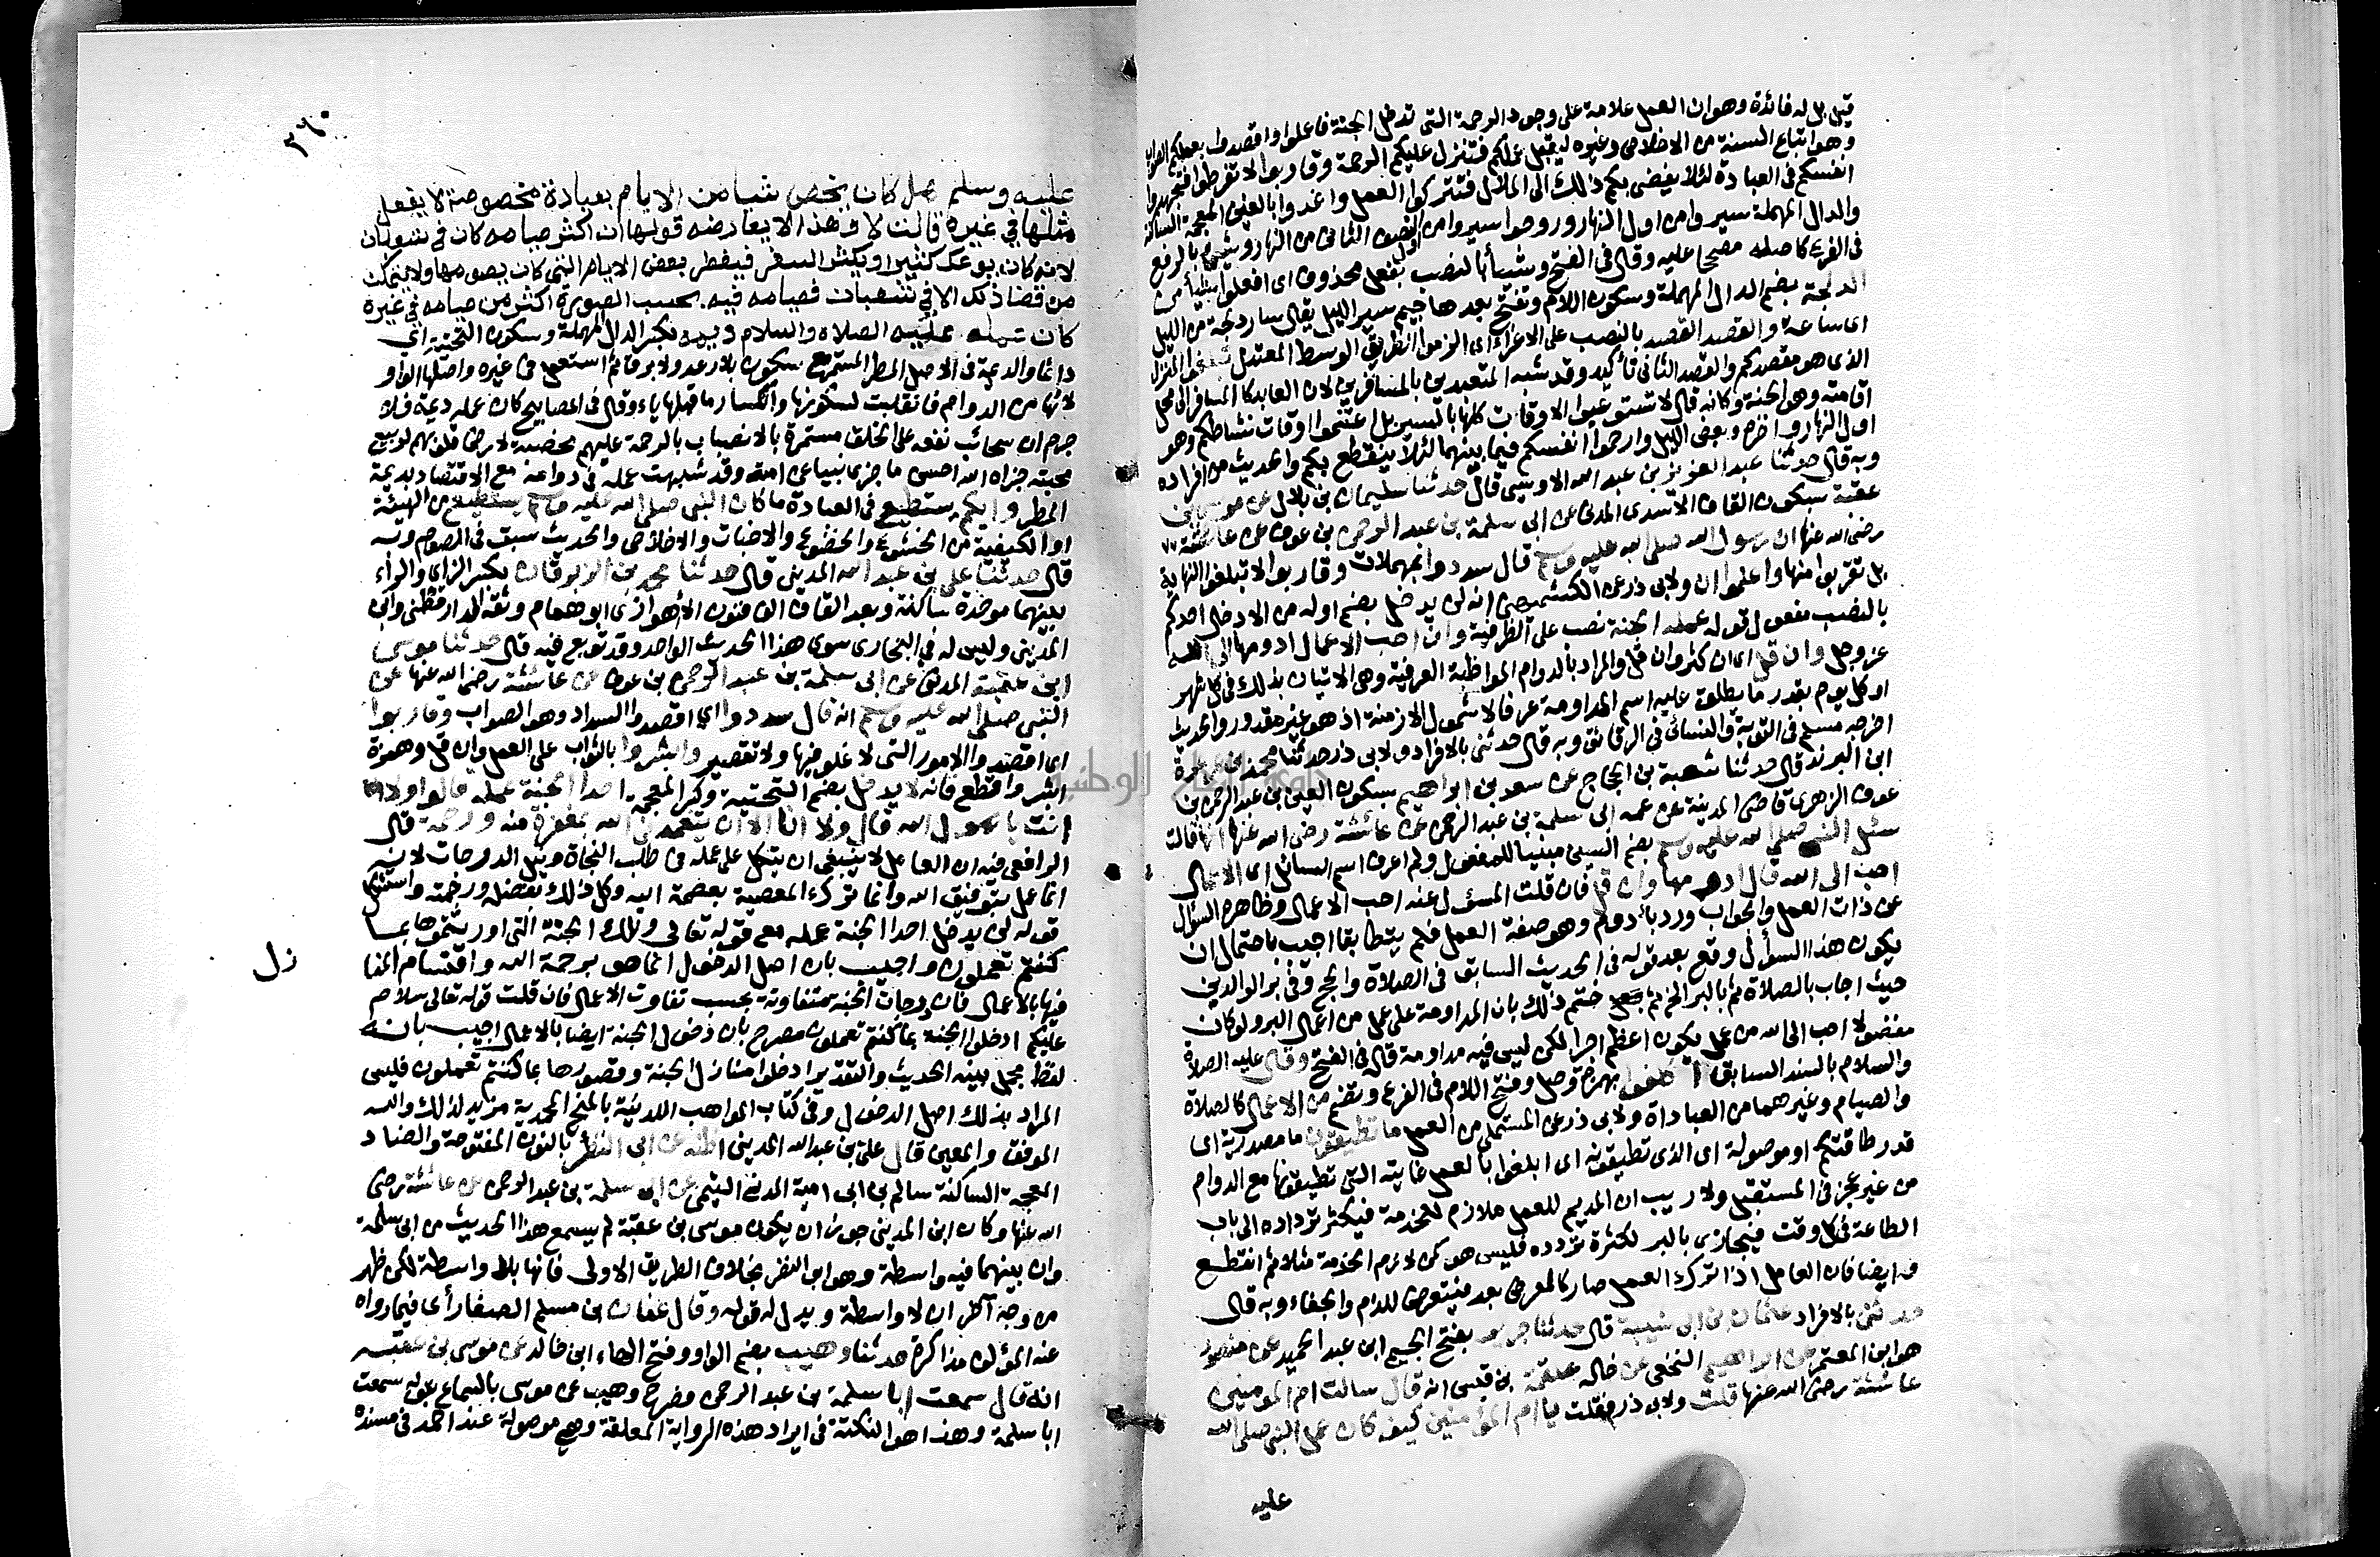 قيل بل له فائدة وهو ان العمل علامة على وجود الرحمة التى تدخل الجنة فاعملوا واقصدوا بعملكم الصواب
وهو اتباع السنة من الاخلاص وغيره ليقبل عملكم فتنزل عليكم الرحمة وقاربوا لا تفرطوا فتجهدوا
انفسكم فى العبادة لئلا يفضى بكم ذلك الى الملال فتتركوا العمل واغدوا بالغين المعجمة الساكنة
والدال المهملة سيروا من اول النهار وروحوا سيروا من اول النصف الثانى من النهار وشىء بالرفع
فى الفرع كاصله مصححا عليه وقال فى الفتح وشيأ بالنصب بفعل محذوف اى افعلوا شيأ من
الدلجة بضم الدال المهملة وسكون اللام وتفتح بعدها جيم سير الليل يقال سار دلجة من الليل
اى ساعة والقصد القصد بالنصب على الاغراء اى الزموا الطريق الوسط المعتدل تبلغوا المنزل
الذى هو مقصدكم والقصد الثانى تأكيد وقد شبه المتعبدين بالمسافرين لان العابد كالمسافر الى محل
اقامته وهو الجنة وكانه قال لا تستوعبوا الاوقات كلها بالسير بل اغتنموا اوقات نشاطكم وهو
اول النهار واخره وبعض الليل وارحموا انفسكم فيما بينهما لئلا ينقطع بكم والحديث من افراده
وبه قال حدثنا عبد العزيز بن عبد الله الاويسى قال حدثنا سليمان بن بلال عن موسى بن
عقبة بسكون القاف الاسدى المدنى عن ابى سلمة بن عبد الرحمن بن عوف عن عائشة
رضى الله عنها ان رسول الله صلى الله عليه وسلم قال سددوا بمهملات وقاربوا لا تبلغوا النهاية
بل تقربوا منها واعلموا ان ولابى ذر عن الكشميهنى انه لن يدخل بضم اوله من الادخال احدكم
بالنصب مفعول قوله عمله الجنة نصب على الظرفية وان احب الاعمال ادومها الى الله
عز وجل وان قل اى ان كثر وان قل والمراد بالدوام المواظبة العرفية وهى الاتيان بذلك فى كل شهر
او كل يوم بقدر ما يطلق عليه اسم المداومة عرفا لا شمول الازمنة اذ هو غير مقدور والحديث
اخرجه مسلم فى التوبة والنسائى فى الرقائق وبه قال حدثنى بالافراد ولابى ذر حدثنا محمد بن عرعرة
ابن البرند قال حدثنا شعبة بن الحجاج عن سعد بن ابراهيم بسكون العين بن عبد الرحمن بن
عوف الزهرى قاضى المدينة عن عمه ابى سلمة بن عبد الرحمن عن عائشة رضى الله عنها انها قالت
سئل النبى صلى الله عليه وسلم بضم السين مبنيا للمفعول ولم اعرف اسم السائل اى الاعمال
احب الى الله قال ادومها وان قل فان قلت المسؤل عنه احب الاعمال وظاهره السؤال
عن ذات العمل والجواب ورد بأدوم وهو صفة العمل فلم يتطابقا اجيب باحتمال ان
يكون هذا السؤال وقع بعد قوله فى الحديث السابق فى الصلاة والحج وفى بر الوالدين
حيث اجاب بالصلاة ثم بالبر الخ ثم ختم ذلك بان المداومة على عمل من اعمال البر ولو كان
مفضولا احب الى الله من عمل يكون اعظم اجرا لكن ليس فيه مداومة قاله فى الفتح وقال عليه الصلاة
والسلام بالسند السابق اكلفوا بهمزة وصل وفتح اللام فى الفرع وتضم من الاعمال كالصلاة
والصيام وغيرهما من العباداة ولابى ذر عن المستملى من العمل ما تطيقون ما مصدرية اى
قدر طاقتكم او موصولة اى الذى تطيقونه اى ابلغوا بالعمل غايته التى تطيقونها مع الدوام
من غير عجز فى المستقبل ولا ريب ان المديم للعمل ملازم للخدمة فيكثر ترداده الى باب
الطاعة فى كل وقت فيجازى بالبر لكثرة تردده فليس هو كمن لازم الخدمة مثلا ثم انقطع
وايضا فان العامل اذا ترك العمل صار كالمعرض بعد فيتعرض للذم والجفاء وبه قال
حدثنى بالافراد عثمان بن ابى شيبة قال حدثنا جرير بفتح الجيم ابن عبد الحميد عن منصور
هو ابن المعتمر عن ابراهيم النخعى عن خاله علقمة بن قيس انه قال سالت ام المومنين
عائشة رضى الله عنها قلت ولابى ذر فقلت يا ام المؤمنين كيف كان عمل النبى صلى الله
عليه
٣٦٠
عليه وسلم هل كان يخص شيا من الايام بعبادة مخصوصة لا يفعل
مثلها فى غيره قالت لا وهذا لا يعارضه قولها ان اكثر صيامه كان فى شعبان
لانه كان يوعك كثيرا ويكثر السفر فيفطر بعض الايام التى كان يصومها ولا يتمكن
من قضا ذلك الا فى شعبان فصيامه فيه بحسب الصورة اكثر من صيامه فى غيره
كان عمله عليه الصلاه والسلام ديمه بكسر الدال المهملة وسكون التحتية اى
دائما والديمة فى الاصل المطر المستمر مع سكون بلا رعد ولا برق ثم استعمل فى غيره واصلها الواو
لانها من الدوام فانقلبت لسكونها وانكسار ما قبلها ياء وقال فى المصابيح كان عمله ديمة فلا
جرم ان سحائب نفعه على الخلق مستمرة بالانصباب بالرحمة عليهم مخصبة لارض قلوبهم لربيع
محبته جزاه الله احسن ما جزى نبيا عن امته وقد شبهت عمله فى دوامه مع الاقتصاد بديمة
المطر وايكم يستطيع فى العبادة ما كان النبى صلى الله عليه وسلم يستطيع من الهيئة
او الكيفية من الخشوع والخضوع والاخبات والاخلاص والحديث سبق فى الصوم وبه
قال حدثنا على بن عبد الله المدينى قال حدثنا محمد بن الزبرقان بكسر الزاى والراء
بينهما موحدة ساكنة وبعد القاف الف فنون الأهوازى ابو همام وثقه الدارقطنى وابن
المدينى وليس له فى البخارى سوى هذا الحديث الواحد وقد توبع فيه قال حدثنا موسى
ابن عقبة المدنى عن ابى سلمة بن عبد الرحمن بن عوف عن عائشة رضى الله عنها عن
النبى صلى الله عليه وسلم انه قال سددوا اى اقصدوا السداد وهو الصواب وقاربوا
اى اقصدوا الامور التى لا غلو فيها ولا تقصير وابشروا بالثواب على العمل وان قل وهمزة
ابشروا قطع فانه لا يدخل بضم التحتية وكسر المعجمة احدا الجنة عمله قالوا ولا
انت يا رسول الله قال ولا انا الا ان يتغمدنى الله بمغفرة منه ورحمة قال
الرافعى فيه ان العامل لا ينبغى ان يتكل على عمله فى طلب النجاة ونيل الدرجات لانه
انما عمل بتوفيق الله وانما ترك المعصية بعصمة الله وكل ذلك بفضله ورحمته واستشكل
قوله لن يدخل احدا الجنة عمله مع قوله تعالى وتلك الجنة التى اورثتموها بما
كنتم تعملون واجيب بان اصل الدخول انما هو برحمة الله واقتسام المنا
زل
فيها بالاعمال فان درجات الجنة متفاوتة بحسب تفاوت الاعمال فان قلت قوله تعالى سلام
عليكم ادخلوا الجنة بما كنتم تعملون مصرح بان دخول الجنة ايضا بالاعمال اجيب بانه
لفظ مجمل بينه الحديث والتقدير ادخلوا منازل الجنة وقصورها بما كنتم تعملون فليس
المراد بذلك اصل الدخول وفى كتاب المواهب اللدنية بالمنح المحمدية مزيد لذلك والله
الموفق والمعين قال على بن عبد الله المدينى اظنه عن ابى النضر بالنون المفتوحة والضاد
المعجمة الساكنة سالم بن ابى امية المدنى التيمى عن ابى سلمة بن عبد الرحمن عن عائشة رضى
الله عنها وكان ابن المدينى جوز ان يكون موسى بن عقبة لم يسمع هذا الحديث من ابى سلمة
وان بينهما فيه واسطة وهو ابو النضر بخلاف الطريق الاولى فانها بلا واسطة لكن ظهر
من وجه آخر ان لا واسطة ويدل له قوله وقال عفان بن مسلم الصفار أى فيما رواه
عنه المؤلف مذاكرة حدثنا وهيب بضم الواو وفتح الهاء ابن خالد عن موسى بن عقبة
انه قال سمعت ابا سلمة بن عبد الرحمن وصرح وهيب عن موسى بالسماع بقوله سمعت
ابا سلمة وهذا هو النكتة فى ايراد هذه الرواية المعلقة وهى موصولة عند احمد فى مسنده